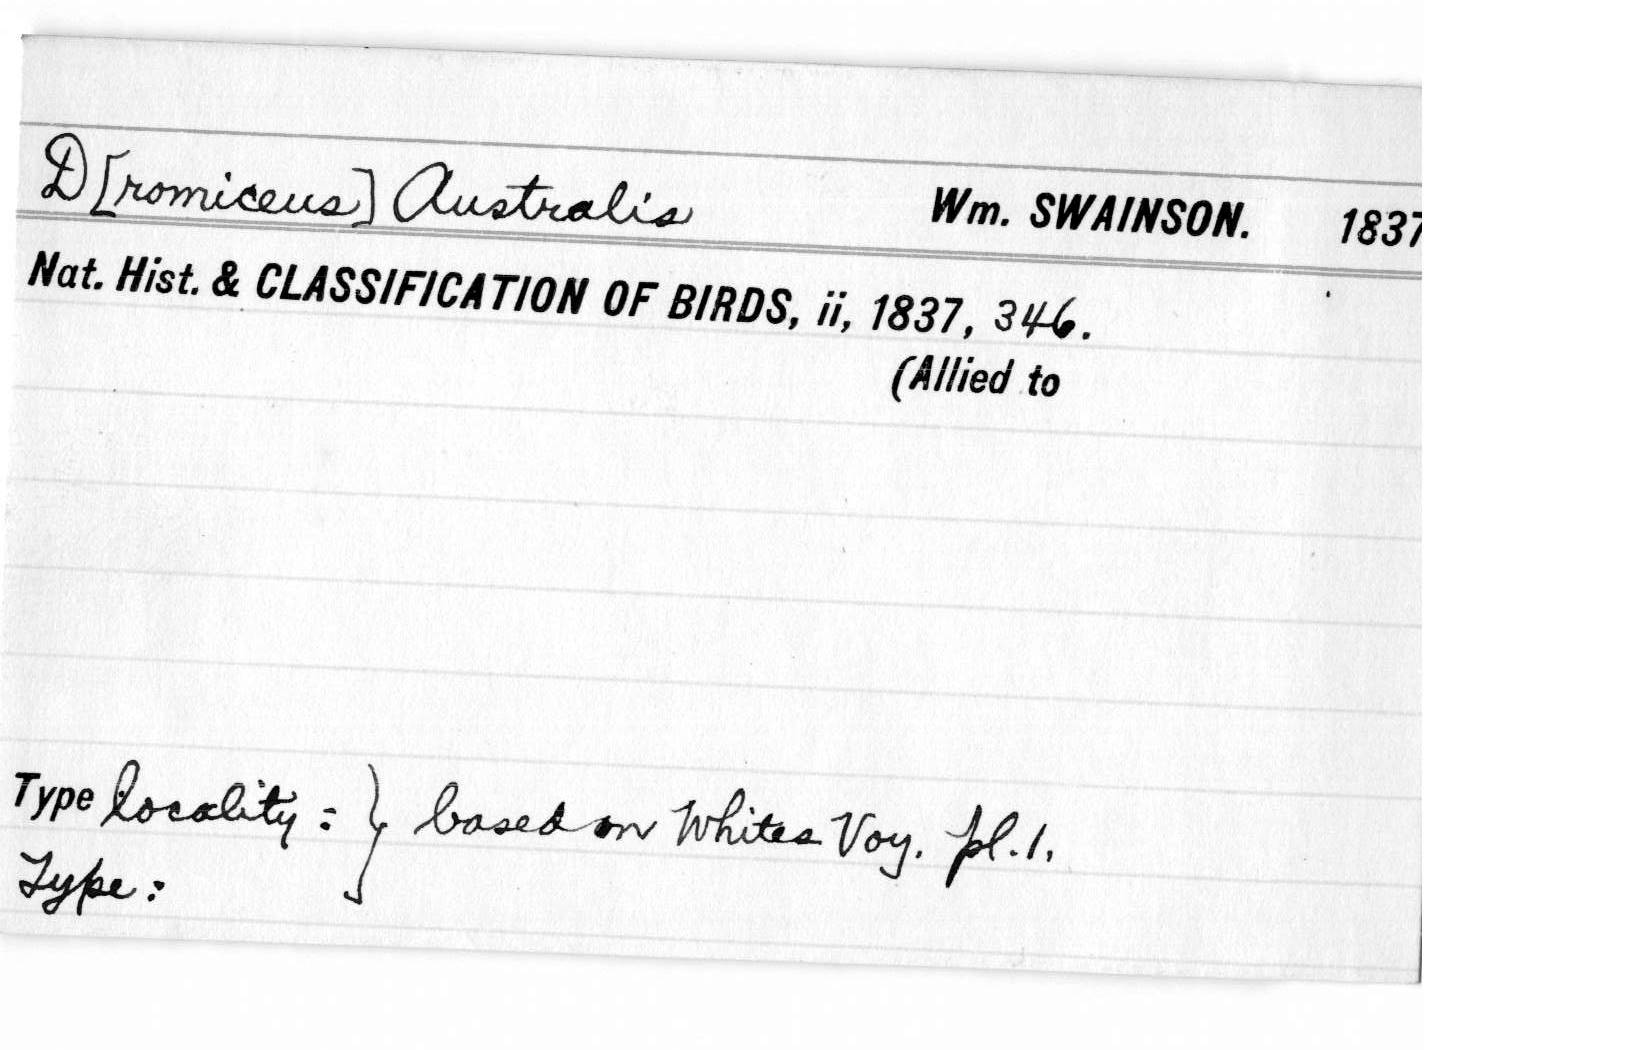 D[romiceus] Australis Wm. SWAINSON. 1837
Nat. Hist. & CLASSIFICATION OF BIRDS, ii, 1837, 346.
(Allied to
Type locality : } based on Whites Voy. pl. 1.
Type :